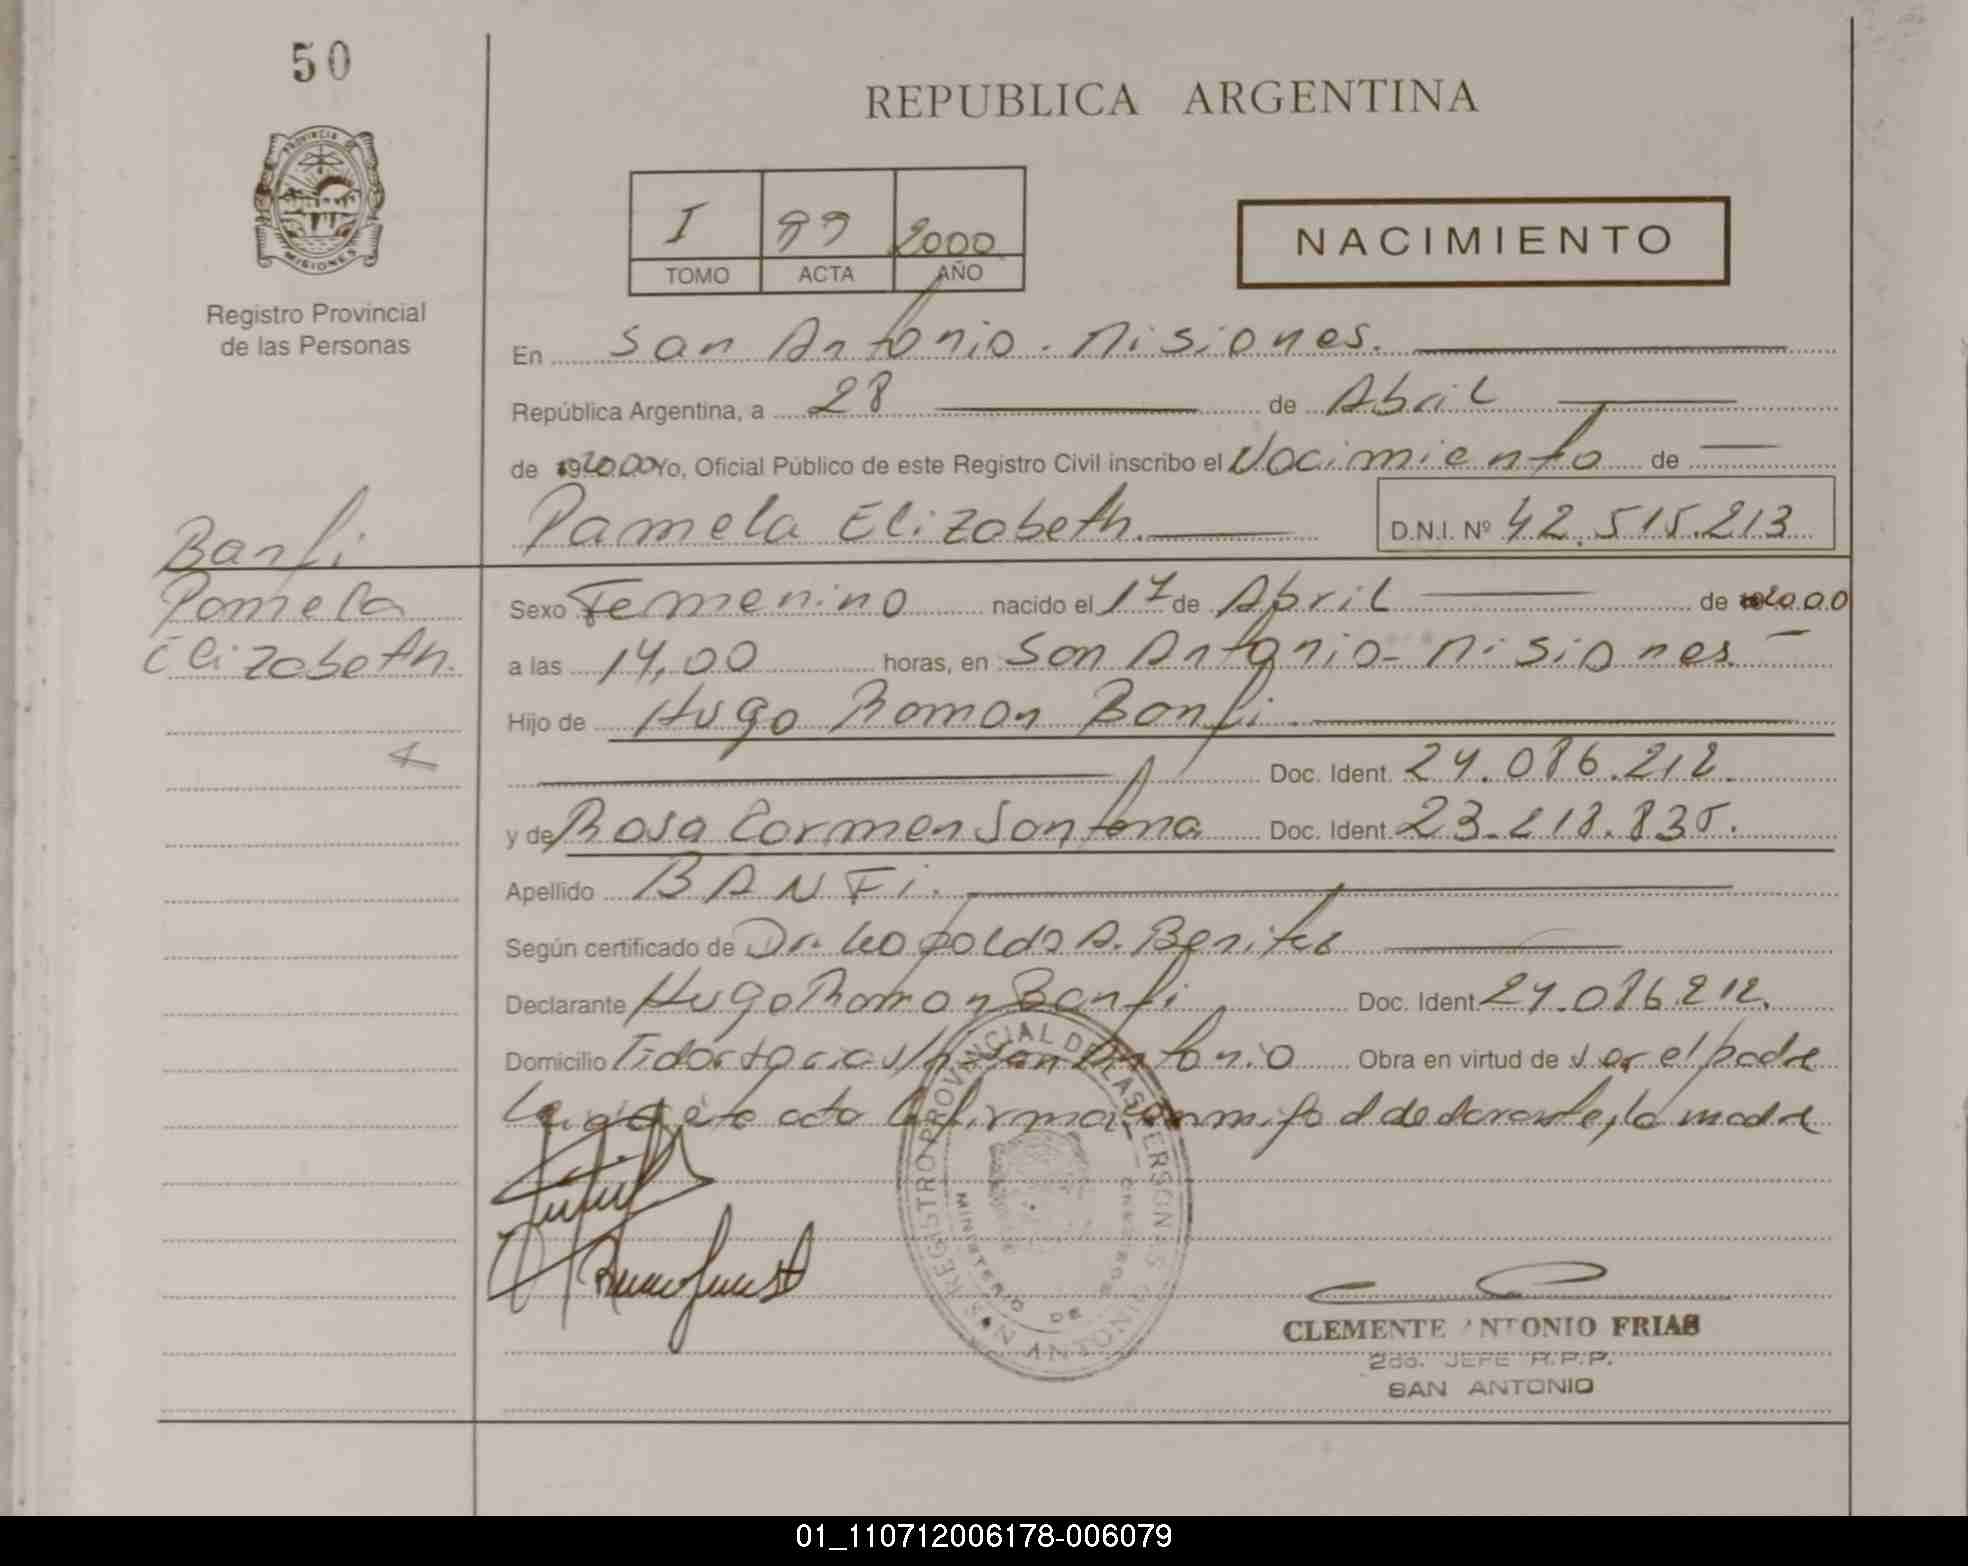 50
REPUBLICA ARGENTINA
PROVINCIA DE MISIONES
I 99 2000
TOMO ACTA AÑO
NACIMIENTO
Registro Provincial
de las Personas
En San Antonio - Misiones.
República Argentina, a 28 de Abril
de 2000 Yo, Oficial Público de este Registro Civil inscribo el Nacimiento de
Pamela Elizabeth. D.N.I. Nº 42.515.213
Banfi
Pamela
Elizabeth.
Sexo Femenino nacido el 17 de Abril de 2000
a las 14,00 horas, en San Antonio - Misiones.
Hijo de Hugo Ramon Banfi.
Doc. Ident. 24.086.212.
y de Rosa Carmen Santana Doc. Ident. 23.218.835.
Apellido BANFi.
Según certificado de Dr. Leopoldo A. Benites
Declarante Hugo Ramon Banfi Doc. Ident. 24.086.212.
Domicilio San Antonio Obra en virtud de ser el padre
acta la firma conmigo el declarante, la madre
REGISTRO PROVINCIAL DE LAS PERSONAS
MINISTERIO DE GOB
SAN ANTONIO
CLEMENTE ANTONIO FRIAS
2do. JEFE R.P.P.
SAN ANTONIO
01_110712006178-006079